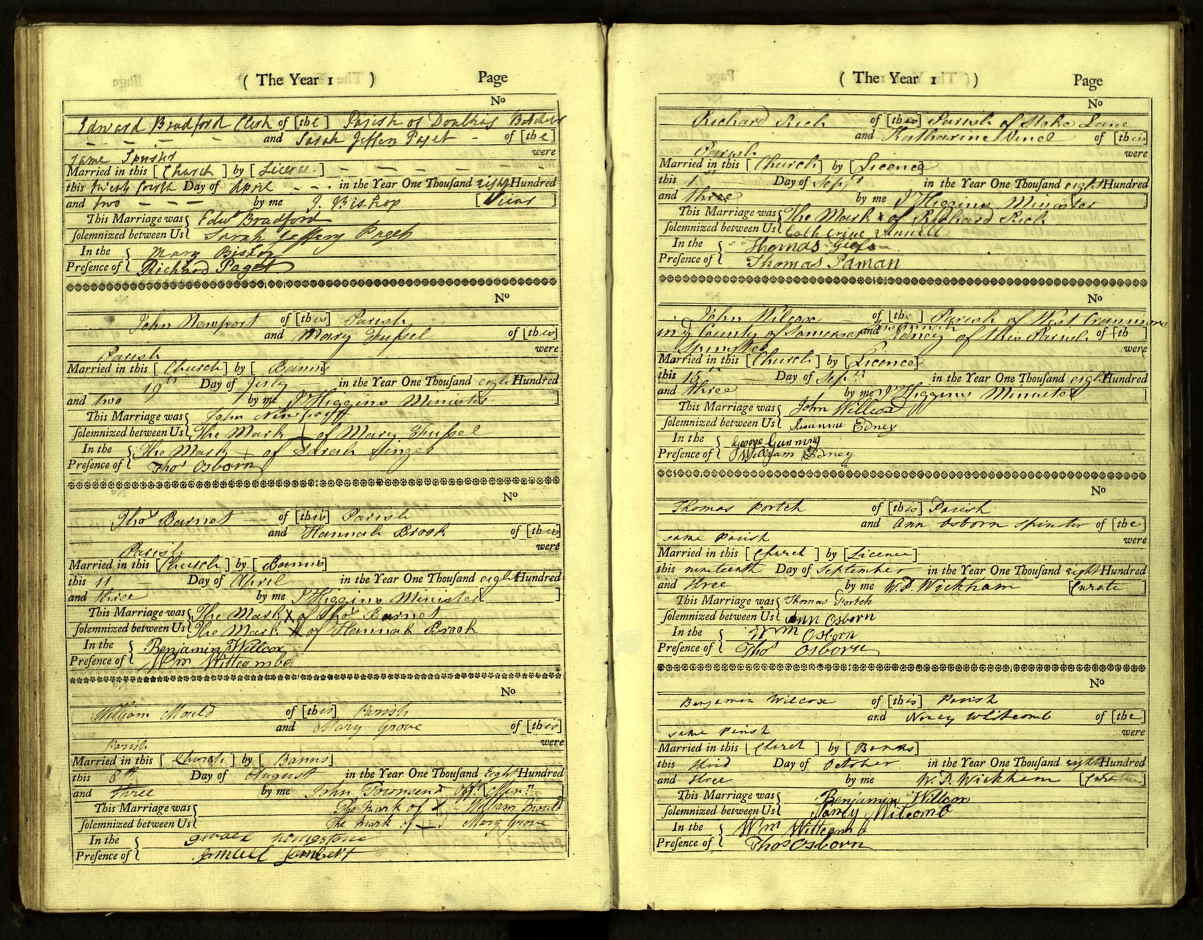 ( The Year 1 ) Page
No
Edward Bradford Clerk of [the] Parish of Doulting Batcheler
and Sarah Jeffery Paget of [the
same Spinster were
Married in this [Church] by [Licence]
this Day of April in the Year One Thousand eight Hundred
and two by me J. Bishop [Vicar
This Marriage was Edwd Bradford
Solemnized between Us Sarah Jeffery Paget
In the Mary Bishop
Presence of Richard Paget
No
John Newport of [this] Parish
and Mary Fussel of [this]
Parish were
Married in this [Church] by [Banns
19th Day of July in the Year One Thousand eight Hundred
and two by me J Higgins Minister ]
This Marriage was John Newport
Solemnized between Us The Mark + of Mary Fussel
In the The Mark + of Sarah
Presence of Thos Osborn
No
Thos Barnet of [this] Parish
and Hannah Brook of [this]
Parish were
Married in this [Church] by [Banns]
this 11 Day of April in the Year One Thousand eight Hundred
and three by me J Higgins Minister ]
This Marriage was The Mark X of Thos Barnet
Solemnized between Us The Mark X of Hannah Brook
In the Benjamin Willcox
Presence of Wm Wittcombe
No
William Mould of [this] Parish
and Mary Grove of [this]
Parish were
Married in this [Church] by [Banns]
this 8th Day of August in the Year One Thousand Eight Hundred
and three by me John Townsend Offg [Minr]
This Marriage was The Mark of X William Mould
Solemnized between Us The mark of + Mary Grove
In the
Presence of Samuel Lambert
( The Year 1 ) Page
No
Richard Rich of [the] Parish of Stoke Lane
and Katharine of [this
Parish were
Married in this [Church] by [Licence]
this 1st Day of Sept in the Year One Thousand eight Hundred
and three by me J Higgins Minister
This Marriage was The Mark x of Richard Rich
Solemnized between Us Catherine
In the Thomas
Presence of Thomas Paman
No
John Wilcox of [the] Parish of West Cranmore
in ye County of Somerset and Edney of this Parish of [th
Spinster were
Married in this [Church] by [Licence]
this 15th Day of Sept in the Year One Thousand eight Hundred
and three by me J Higgins Minister ]
This Marriage was John Willcox
Solemnized between Us Edney
In the George Gunning
Presence of William Edney
No
Thomas Portch of [this] Parish
and Ann Osborn Spinster of [the
same Parish were
Married in this [Church] by [Licence]
this nineteenth Day of September in the Year One Thousand eight Hundred
and three by me W.D. Wickham [Curate]
This Marriage was Thomas Portch
Solemnized between Us Ann Osborn
In the Wm Osborn
Presence of Thos Osborn
No
Benjamin Wilcox of [this] Parish
and Nancy Whitcomb of [the]
same Parish were
Married in this [Church] by [Banns]
this third Day of October in the Year One Thousand eight Hundred
and three by me W. D. Wickham [Curate]
This Marriage was Benjamin Willcox
Solemnized between Us Nancy Witcomb
In the Wm Wittcomb
Presence of Thos Osborn